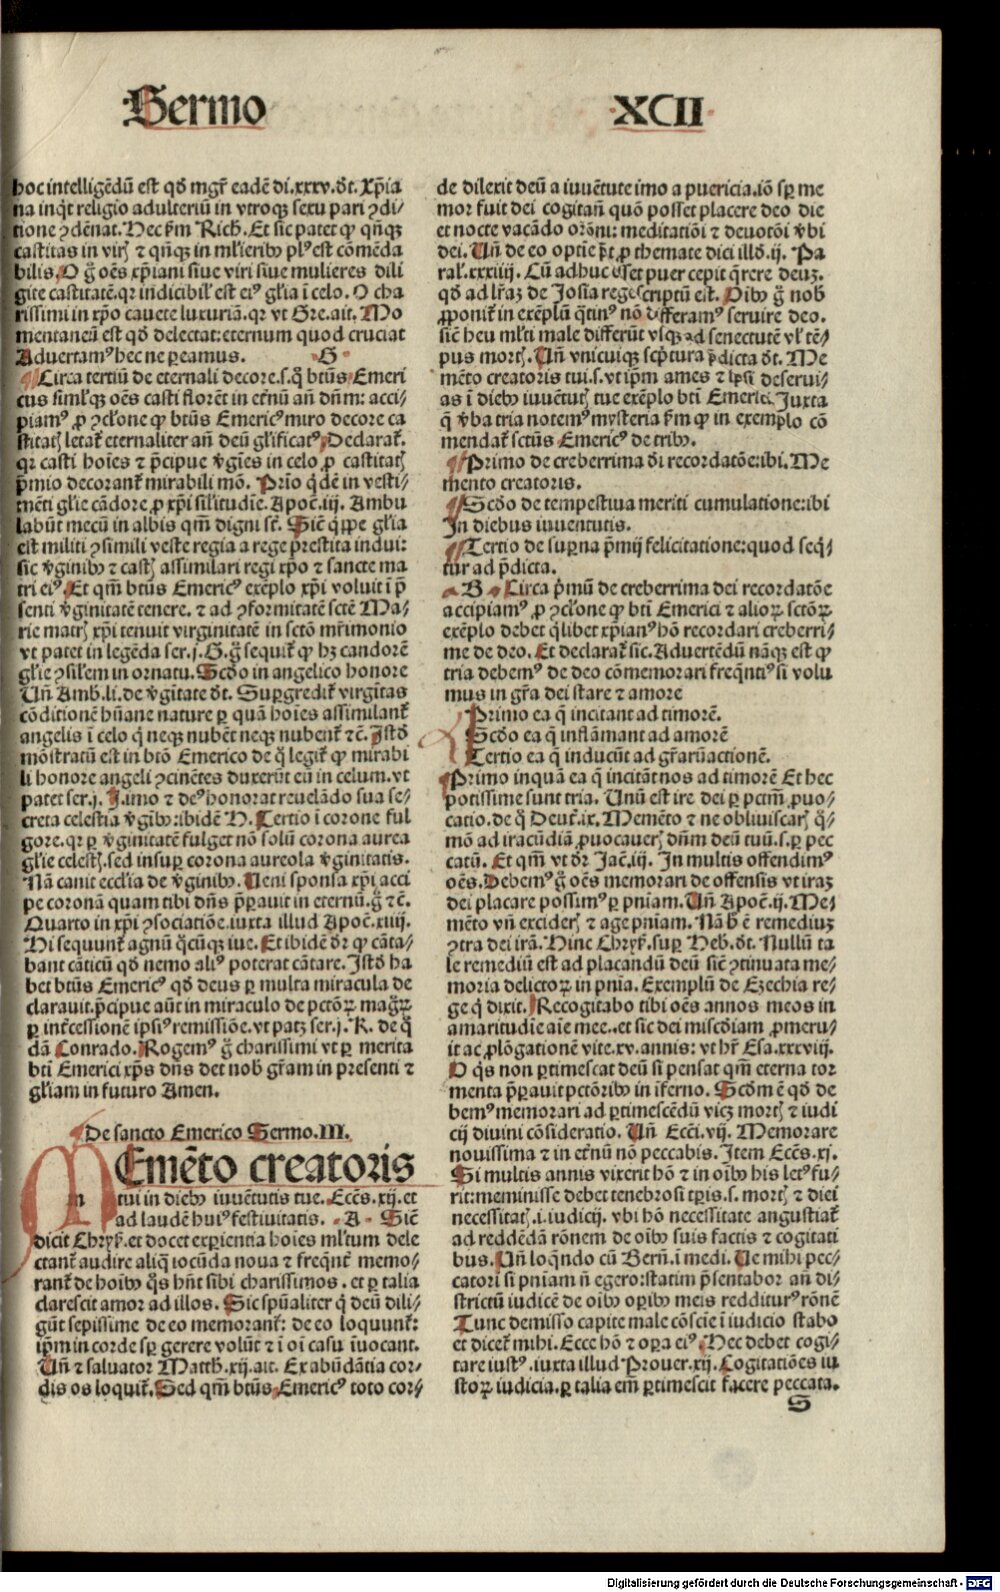 Sermo XCII
hoc intelligēdū est qd mgr̄ eadē di.xxxv.dt. Xp̄ia
na inq̇t religio adulteriū in vtroqꝫ sexu pari ꝯdi⸗
tione ꝯdēnat. Hec f̄m Rich. Et sic patet ꝙ qn̄qꝫ
castitas in viri᷒ ⁊ qn̄qꝫ in ml̓ierib᷒ pl᷒ est cōmēda
bilis. O g̊ oēs xp̄iani siue viri siue mulieres dili
gite castitatē.qr indicibil̓ est ei᷒ gl̓ia ī celo. O cha
rissimi in xp̄o cauete luxuriā.qr vt Gre.ait. Mo
mentaneū est qd delectat: eternum quod cruciat
Aduertam᷒ hec ne ꝑeamus. G
Circa tertiū de eternali decore.s.q̊ btūs Emeri
cus siml̓qꝫ oēs casti florēt in et̓nū an̄ dn̄m: acci⸗
piam᷒ ꝓ ꝯcl̓one ꝙ btūs Emeric᷒ miro decore ca
stitat̄ꝭ letat̄ eternaliter an̄ deū gl̓ificat᷒. Declarat̄.
qr casti hoīes ⁊ p̄cipue v̓gīes in celo ꝓ castitatꝭ
p̄mio decorant̄ mirabili mō. Prīo qdē in vesti⸗
mēti gl̓ie cādore ꝓ xp̄i sil̓itudīe. Apoc̄.iij. Ambu
labūt mecū in albis qm̄ digni st̄. Sic̄ q̇ꝑpe gl̓ia
est militi ꝯsimili veste regia a rege p̄restita indui:
sic v̓ginib᷒ ⁊ castꝭ assimilari regi xp̄o ⁊ sancte ma
tri ei᷒. Et qm̄ btūs Emeric᷒ exēplo xp̄i voluit ī p̄
senti v̓ginitatē tenere. ⁊ ad ꝯformitatē sctē Ma⸗
rie matrꝭ xp̄i tenuit virginitatē in sctō mr̄imonio
vt patet in legēda ser.j.G. g̊ sequit̄ ꝙ hꝫ candorē
gl̓ie ꝯsil̓em in ornatu. Scdo in angelico honore
Un̄ Amb.li.de v̓gītate dt. Suꝑgredit̄ virgītas
cōditionē hūane nature ꝑ quā hoīes assimilant̄
angelis ī celo q̇ neqꝫ nubēt neqꝫ nubent̄ ⁊c̄. Istd
mōstratū est in btō Emerico de q̊ legit̄ ꝙ mirabi
li honore angeli ꝯcinētes duxerūt eū in celum.vt
patet ser.j. J.imo ⁊ de᷒ honorat reuelādo sua se⸗
creta celestia v̓gīb᷒: ibidē H. Tertio ī corone ful
gore.qr ꝑ v̓ginitatē fulget nō solū corona aurea
gl̓ie celestꝭ.sed insuꝑ corona aureola v̓ginitatis.
Nā canit eccl̓ia de v̓ginib᷒. Ueni sponsa xp̄i acci
pe coronā quam tibi dn̄s p̄parauit in eternū.g̊ ⁊c̄.
Quarto in xp̄i ꝯsociatiōe.iuxta illud Apoc̄.xiiij.
Hi sequunt̄ agnū q̊cūqꝫ iue. Et ibidē dr̄ ꝙ cāta⸗
bant cāticū qd nemo ali᷒ poterat cātare. Istd ha
bet btūs Emeric᷒ qd deus ꝑ multa miracula de
clarauit.p̄cipue aūt in miraculo de pctōꝝ mag̊ꝝ
ꝑ int̓cessionē ipsi᷒ remissiōe.vt patꝫ ser.j. K. de q̊
dā Conrado. Rogem᷒ g̊ charissimi vt ꝑ merita
bti Emerici xp̄s dn̄s det nob̄ gr̄am in presenti ⁊
gl̓iam in futuro Amen.
De sancto Emerico Sermo.III.
MEmēto creatoris
m tui in dieb᷒ iuuētutis tue. Ecc̄s.xij.et
ad laudē hui᷒ festiuitatis. A Sic̄
dicit Chryẜ.et docet exꝑientia hoīes ml̓tum dele
ctant̄ audire aliq̄ iocūda noua ⁊ freq̄nt̄ memo⸗
rant̄ de hoīb᷒ q̊s hn̄t sibi charissimos. et ꝑ talia
clarescit amor ad illos. Sic spūaliter q̇ deū dili⸗
gūt sepissime de eo memorant̄: de eo loquunt̄:
ip̄m in corde sꝑ gerere volūt ⁊ ī oī casu īuocant.
Un̄ ⁊ saluator Matth.xij.ait. Ex abūdātia cor⸗
dis os loquit̄. Sed qm̄ btūs Emeric᷒ toto cor⸗
de dilexit deū a iuuētute imo a puericia.iō sꝑ me
mor fuit dei cogitan̄ quō posset placere deo die
et nocte vacādo orōni: meditatiōi ⁊ deuotōi v̓bi
dei. Un̄ de eo optīe p̄t ꝓ themate dici illd.ij. Pa
ral̓.xxxiiij. Cū adhuc esset puer cepit q̄rere deuꝫ.
qd ad lr̄aꝫ de Josia rege scriptū est. Oib᷒ g̊ nob̄
ꝓponit̄ in exēplū q̄tin᷒ nō differam᷒ seruire deo.
sic̄ heu ml̓ti male differūt vsqꝫ ad senectutē vl̓ tē⸗
pus mortꝭ. Un̄ vnicuiqꝫ scp̄tura p̄dicta dt. Me
mēto creatoris tui.s.vt ip̄m ames ⁊ ipsi deserui⸗
as ī dieb᷒ iuuētutꝭ tue exēplo bti Emerici. Juxta
q̄ v̓ba tria notem᷒ mysteria f̄m ꝙ in exemplo cō
mendat̄ sctūs Emeric᷒ de trib᷒.
Primo de creberrima di recordatōe: ibi. Me
mento creatoris.
Scdo de tempestiua meriti cumulatione: ibi
In diebus iuuentutis.
Tertio de suꝑna p̄mij felicitatione: quod seq̄⸗
tur ad p̄dicta.
B Circa p̓mū de creberrima dei recordatōe
accipiam᷒ ꝓ ꝯcl̓one ꝙ bti Emerici ⁊ alioꝝ sctōꝝ
exēplo debet q̇libet xp̄ian᷒ hō recordari creberri⸗
me de deo. Et declarat̄ sic. Aduertēdū nāqꝫ est ꝙ
tria debem᷒ de deo cōmemorari freq̄nti᷒ si volu
mus in gr̄a dei stare ⁊ amore
Primo ea q̄ incitant ad timorē.
Scdo ea q̄ inflāmant ad amorē
Tertio ea q̄ inducūt ad gr̄arūactionē.
Primo inquā ea q̄ incitāt nos ad timorē Et hec
potissime sunt tria. Unū est ire dei ꝑ pctm̄ ꝓuo⸗
catio.de q̊ Deut̄.ix. Memēto ⁊ ne obliuiscarꝭ q̊⸗
mō ad iracūdiā ꝓuocauerꝭ dn̄m deū tuū.s.ꝑ pec
catū. Et qm̄ vt dr̄ Jac̄.iij. In multis offendim᷒
oēs. Debem᷒ g̊ oēs memorari de offensis vt iraꝫ
dei placare possim᷒ ꝑ pn̄iam. Un̄ Apoc̄.ij. Me⸗
mēto vn̄ exciderꝭ ⁊ age pn̄iam. Nā h̄ ē remediuꝫ
ꝯtra dei irā. Hinc Chryẜ.suꝑ Heb̄.dt. Nullū ta
le remediū est ad placandū deū sic̄ ꝯtinuata me⸗
moria delictoꝝ in pn̄ia. Exemplū de Ezechia re⸗
ge q̇ dixit. Recogitabo tibi oēs annos meos in
amaritudīe aīe mee.et sic dei miscdiam ꝓmeru⸗
it ac ꝓlōgationē vite.xv.annis: vt hr̄ Esa.xxxviij.
O q̇s non ꝑtimescat deū si pensat qm̄ eterna tor
menta p̄parauit pctōrib᷒ in if̄erno. Scdm ē qd de
bem᷒ memorari ad ꝑtimescēdū vicꝫ mortꝭ ⁊ iudi
cij diuini cōsideratio. Un̄ Ecc̄i.vij. Memorare
nouissima ⁊ in et̓nū nō peccabis. Item Ecc̄s.xj.
Si multis annis vixerit hō ⁊ in oīb᷒ his let᷒ fu⸗
rit: meminisse debet tenebrosi tꝑis.s. mortꝭ ⁊ diei
necessitatꝭ.i.iudicij. vbi hō necessitate angustiat̄
ad reddēdā rōnem de oīb᷒ suis factis ⁊ cogitati
bus. Un̄ loq̄ndo cū Bern̄.ī medi. Ue mihi pec⸗
catori si pn̄iam n̄ egero: statim p̄sentabor an̄ di⸗
strictū iudicē de oīb᷒ oꝑib᷒ meis redditur᷒ rōnē
Tunc demisso capite male cōscīe ī iudicio stabo
et dicet̄ mihi. Ecce hō ⁊ oꝑa ei᷒. Hec debet cogi⸗
tare iust᷒.iuxta illud Prouer.xij. Cogitatiōes iu
stoꝝ iudicia.ꝑ talia em̄ ꝑtimescit facere peccata.
S
Digitalisierung gefördert durch die Deutsche Forschungsgemeinschaft - DFG